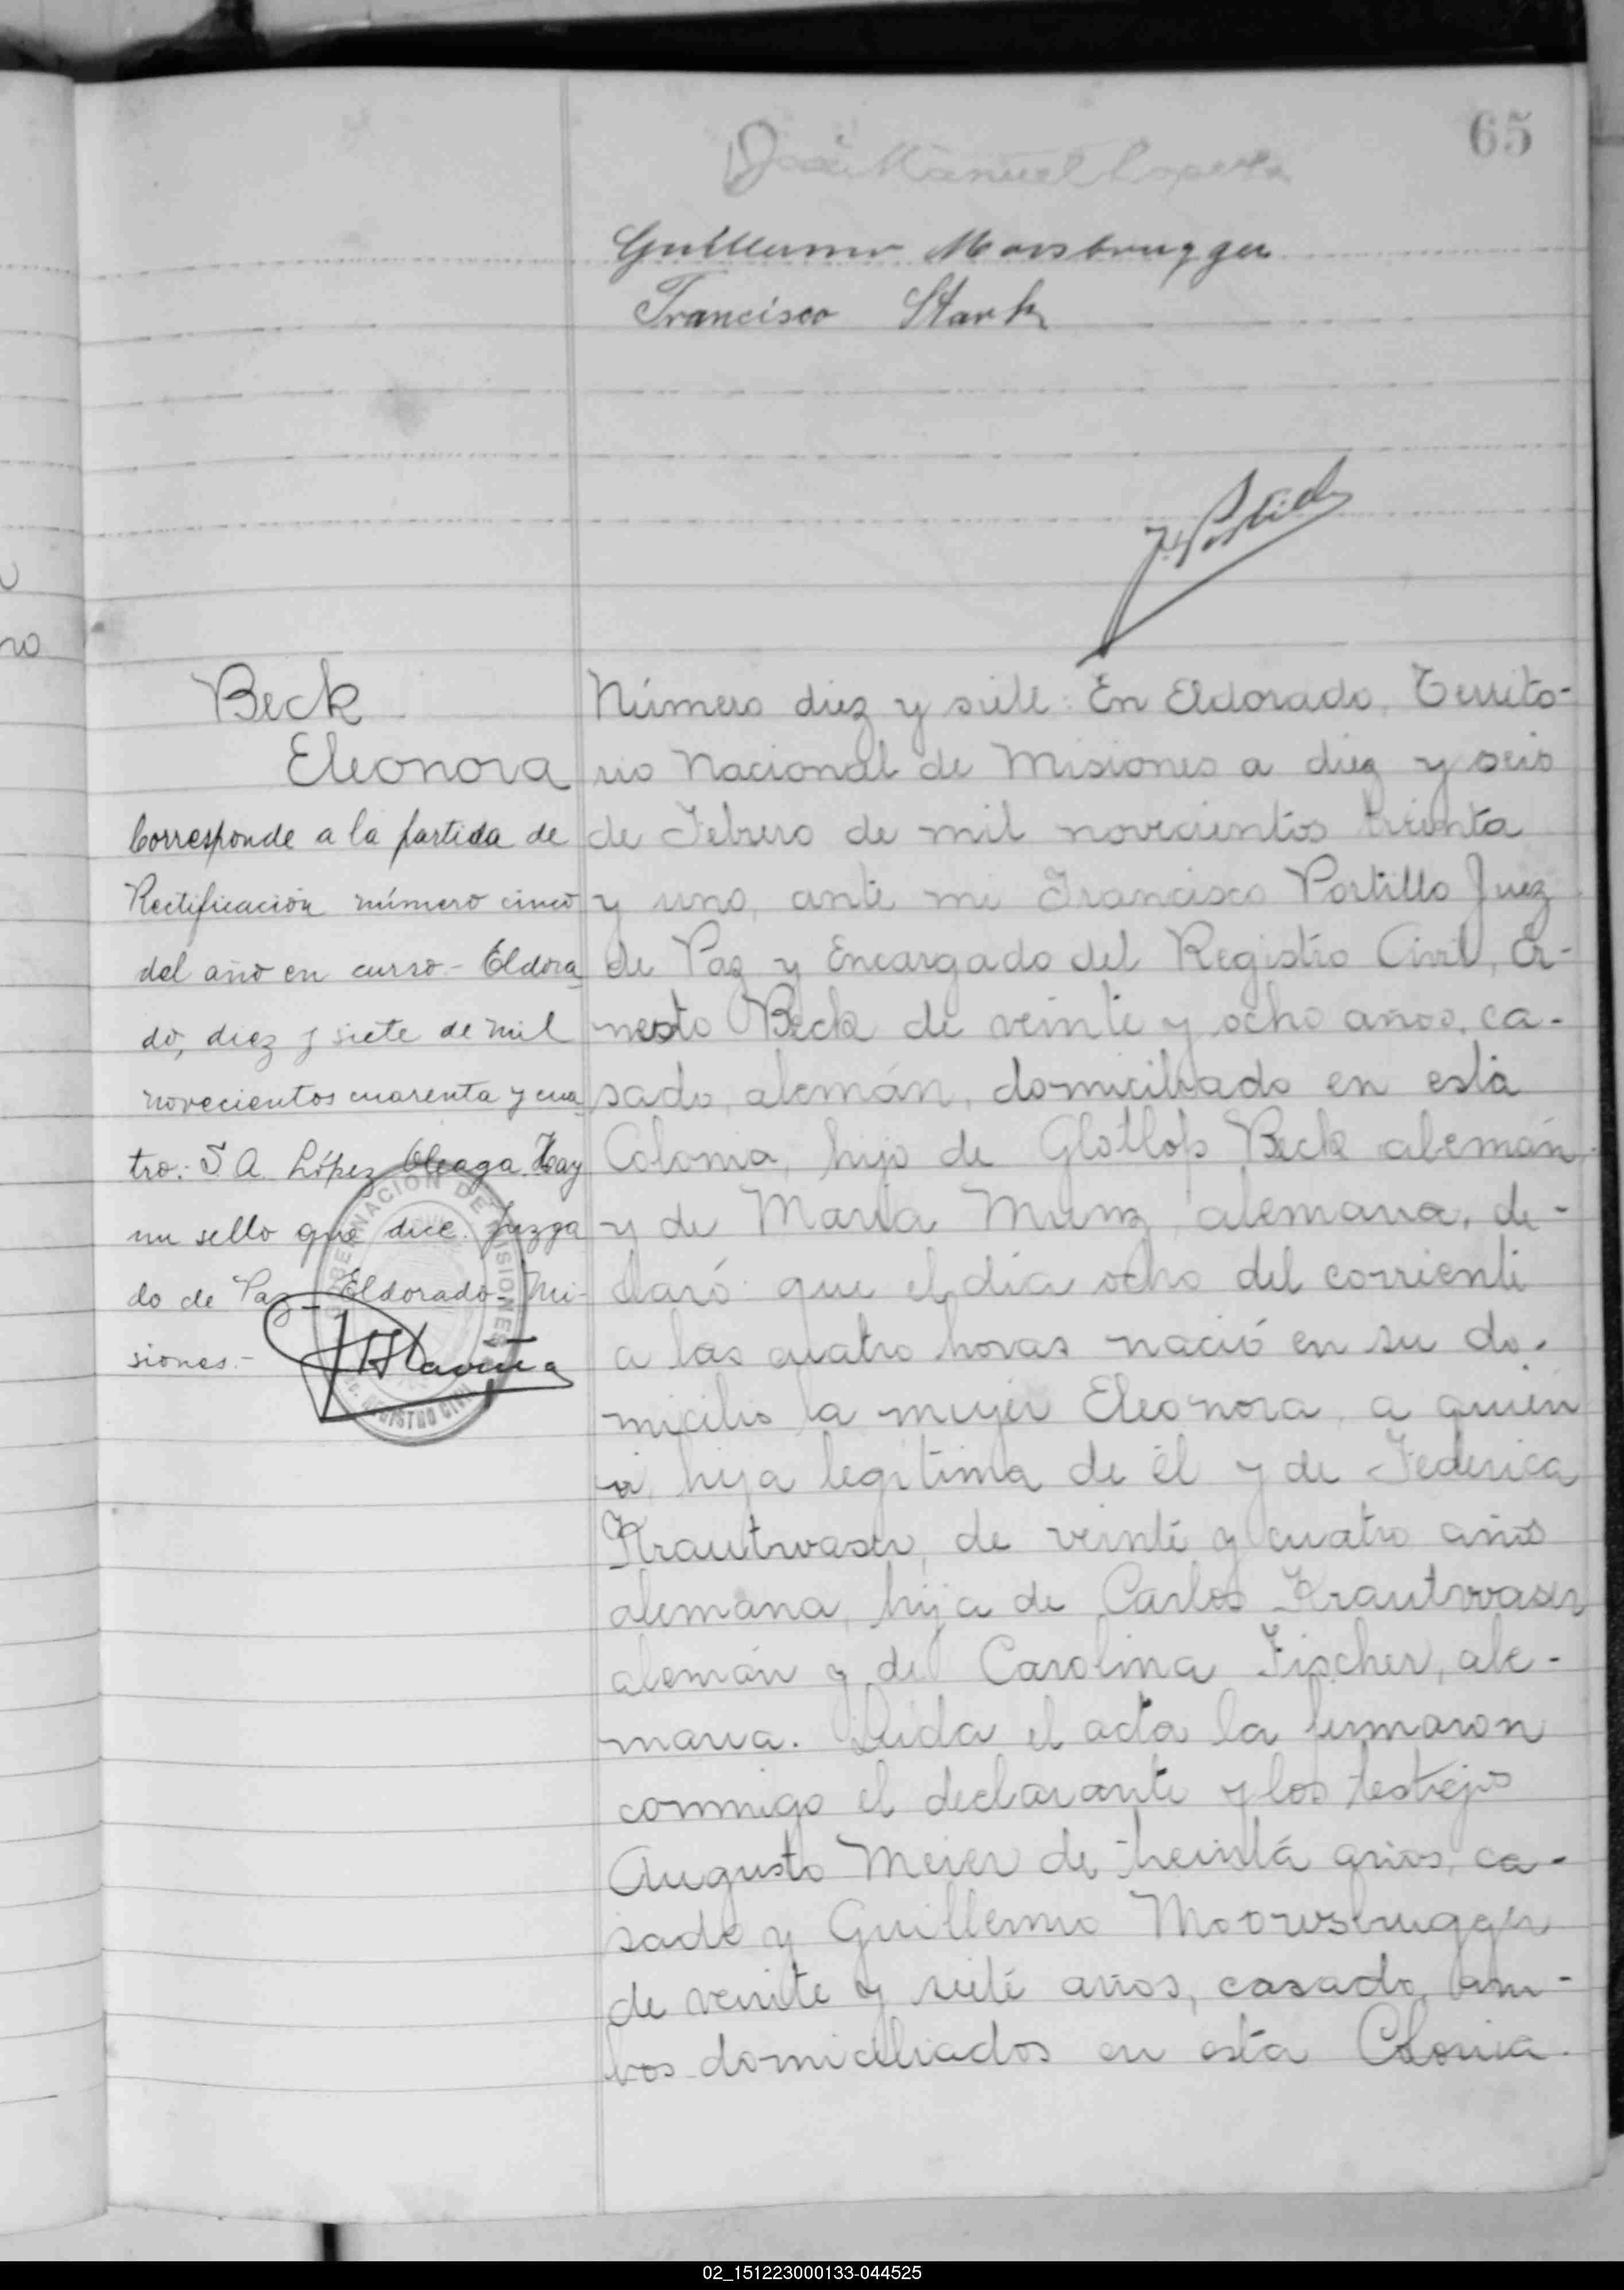 65
José Manuel
Guillermo Moosbrugger
Francisco Stark
Beck
Eleonora
Corresponde a la partida de
Rectificación número cinco
del año en curso - Eldora
do, diez y siete de mil
novecientos cuarenta y cua
tro: S. A. López Oleaga. Hay
un sello que dice. Juzga
do de Paz - Eldorado - Mi-
siones.-
GOBERNACION DE MISIONES
REGISTRO CIVIL
Número diez y siete: En Eldorado, Territo-
rio Nacional de Misiones a diez y seis
de Febrero de mil novecientos treinta
y uno, ante mi Francisco Portillo Juez
de Paz y Encargado del Registro Civil, Er-
nesto Beck de veinte y ocho años, ca-
sado, alemán, domiciliado en esta
Colonia, hijo de Glotlop Beck alemán
y de María Munz, alemana, de-
claró: que el día ocho del corriente
a las cuatro horas nació en su do-
micilio la mujer Eleonora, a quien
vi, hija legítima de él y de Federica
Krautwaser, de veinte y cuatro años
alemana, hija de Carlos Krautwaser
alemán y de Carolina Fischer, ale-
mana. Leida el acta la firmaron
conmigo el declarante y los testigos
Augusto Meier de treinta años, ca-
sado y Guillermo Moorsbrugger
de veinte y siete años, casado, am-
bos domiciliados en esta Colonia.
02_151223000133-044525